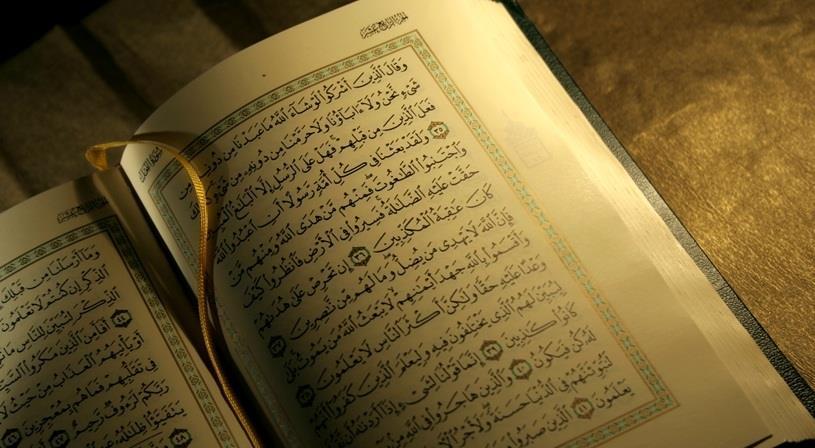 الجزء الرابع عشر
وَقَالَ الَّذِينَ أَشْرَكُوا لَوْ شَاءَ اللَّهُ مَا عَبَدْنَا مِن دُونِهِ مِن
شَيْءٍ نَّحْنُ وَلَا ءَابَاؤُنَا وَلَا حَرَّمْنَا مِن دُونِهِ مِن شَيْءٍ
فَعَلَ الَّذِينَ مِن قَبْلِهِمْ فَهَلْ عَلَى الرُّسُلِ إِلَّا الْبَلَٰغُ
٣٥ وَلَقَدْ بَعَثْنَا فِي كُلِّ أُمَّةٍ رَّسُولًا أَنِ اعْبُدُوا اللَّهَ
وَاجْتَنِبُوا الطَّٰغُوتَ فَمِنْهُم مَّنْ هَدَى اللَّهُ وَمِنْهُم مَّنْ
حَقَّتْ عَلَيْهِ الضَّلَٰلَةُ فَسِيرُوا فِي الْأَرْضِ فَانظُرُوا كَيْفَ
كَانَ عَٰقِبَةُ الْمُكَذِّبِينَ ٣٦ إِن تَحْرِصْ عَلَىٰ هُدَىٰهُمْ
فَإِنَّ اللَّهَ لَا يَهْدِي مَن يُضِلُّ وَمَا لَهُم مِّن نَّٰصِرِينَ ٣٧
وَأَقْسَمُوا بِاللَّهِ جَهْدَ أَيْمَٰنِهِمْ لَا يَبْعَثُ اللَّهُ مَن يَمُوتُ بَلَىٰ
وَعْدًا عَلَيْهِ حَقًّا وَلَٰكِنَّ أَكْثَرَ النَّاسِ لَا يَعْلَمُونَ ٣٨
لِيُبَيِّنَ لَهُمُ الَّذِي يَخْتَلِفُونَ فِيهِ وَلِيَعْلَمَ الَّذِينَ كَفَرُوا أَنَّهُمْ
كَانُوا كَٰذِبِينَ ٣٩ إِنَّمَا قَوْلُنَا لِشَيْءٍ إِذَا أَرَدْنَٰهُ أَن
لَهُ كُن فَيَكُونُ ٤٠ وَالَّذِينَ هَاجَرُوا فِي اللَّهِ مِن
لَنُبَوِّئَنَّهُمْ فِي الدُّنْيَا حَسَنَةً وَلَأَجْرُ
يَعْلَمُونَ ٤١ الَّذِينَ صَبَرُوا
وَمَا أَرْسَلْنَا مِن قَبْلِكَ
الذِّكْرِ إِن كُنتُمْ لَا تَعْلَمُونَ
الذِّكْرَ لِتُبَيِّنَ لِلنَّاسِ مَا
٤٤ أَفَأَمِنَ الَّذِينَ مَكَرُوا
أَوْ يَأْتِيَهُمُ الْعَذَابُ مِنْ حَيْثُ لَا
فِي تَقَلُّبِهِمْ فَمَا هُم بِمُعْجِزِينَ ٤٦
رَبَّكُمْ لَرَءُوفٌ رَّحِيمٌ ٤٧
يَتَفَيَّؤُا ظِلَٰلُهُ عَنِ
٤٨